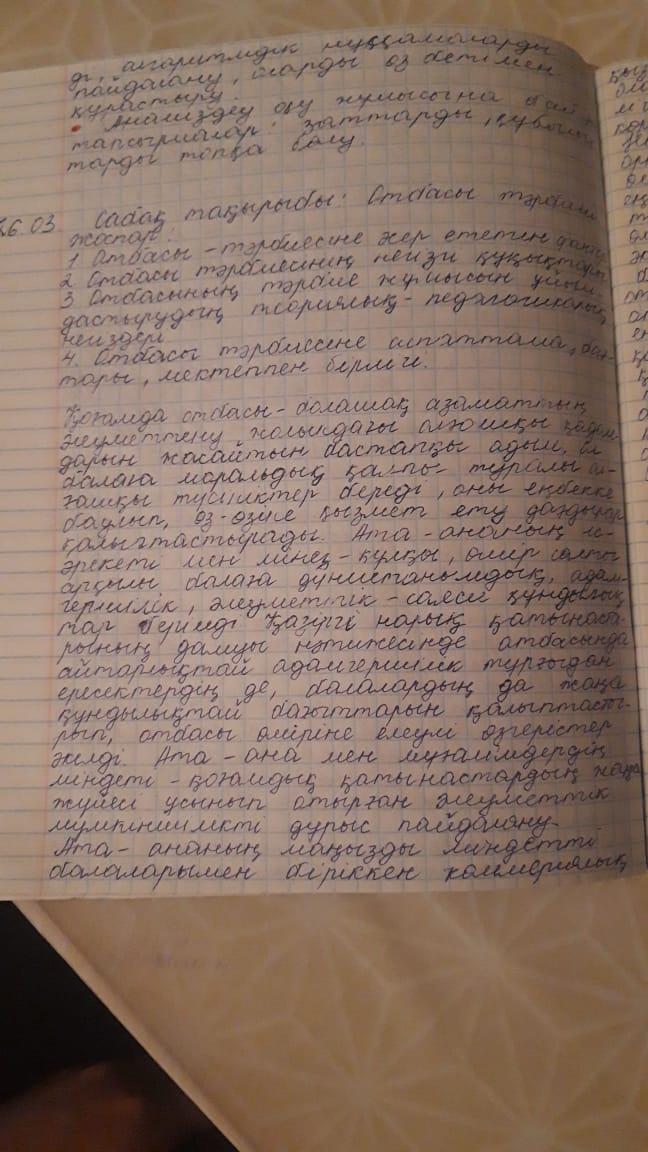 ді, алгоритмдік нұсқамаларды
пайдалану, оларды өз бетімен
құрастыру.
Анализдеу оқу жұмысына
тапсырмалар: заттарды, құбылыс
тарды топқа бөлу.
26.03 Сабақ тақырыбы: Отбасы тәрбиесі
Жоспар:
1 Отбасы - тәрбиесіне әсер ететін
2 Отбасы тәрбиесінің негізгі құқықтары
3 Отбасының тәрбие жұмысын ұйым
дастырудың теориялық - педагогикалық
негіздері
4. Отбасы тәрбиесіне сипаттама,
тары, мектеппен бірлігі.
Қоғамда отбасы - болашақ азаматтың
әлеуметтену жолындағы алғашқы қадам
дарын жасайтын бастапқы адым, ол
балаға моральдық қалпы туралы ал-
ғашқы түсініктер береді, оны еңбекке
баулып, өз-өзіне қызмет ету дағдылар
қалыптастырады. Ата - ананың іс-
әрекеті мен мінез - құлқы, өмір салты
арқылы балаға дүниетанымдық, адам-
гершілік, әлеуметтік - саяси құндылық
тар беріледі Қазіргі нарық қатынаста-
рының дамуы нәтижесінде отбасында
айтарлықтай адамгершілік тұрғыдан
ересектердің де, балалардың да жаңа
құндылықтай бағыттарын қалыптасты-
рып, отбасы өміріне елеулі өзгерістер
әкелді. Ата - ана мен мұғалімдердің
міндеті - қоғамдық қатынастардың жаңа
жүйесі ұсынып отырған әлеуметтік
мүмкіншілікті дұрыс пайдалану.
Ата - ананың маңызды міндетті
балаларымен біріккен коммерциялық